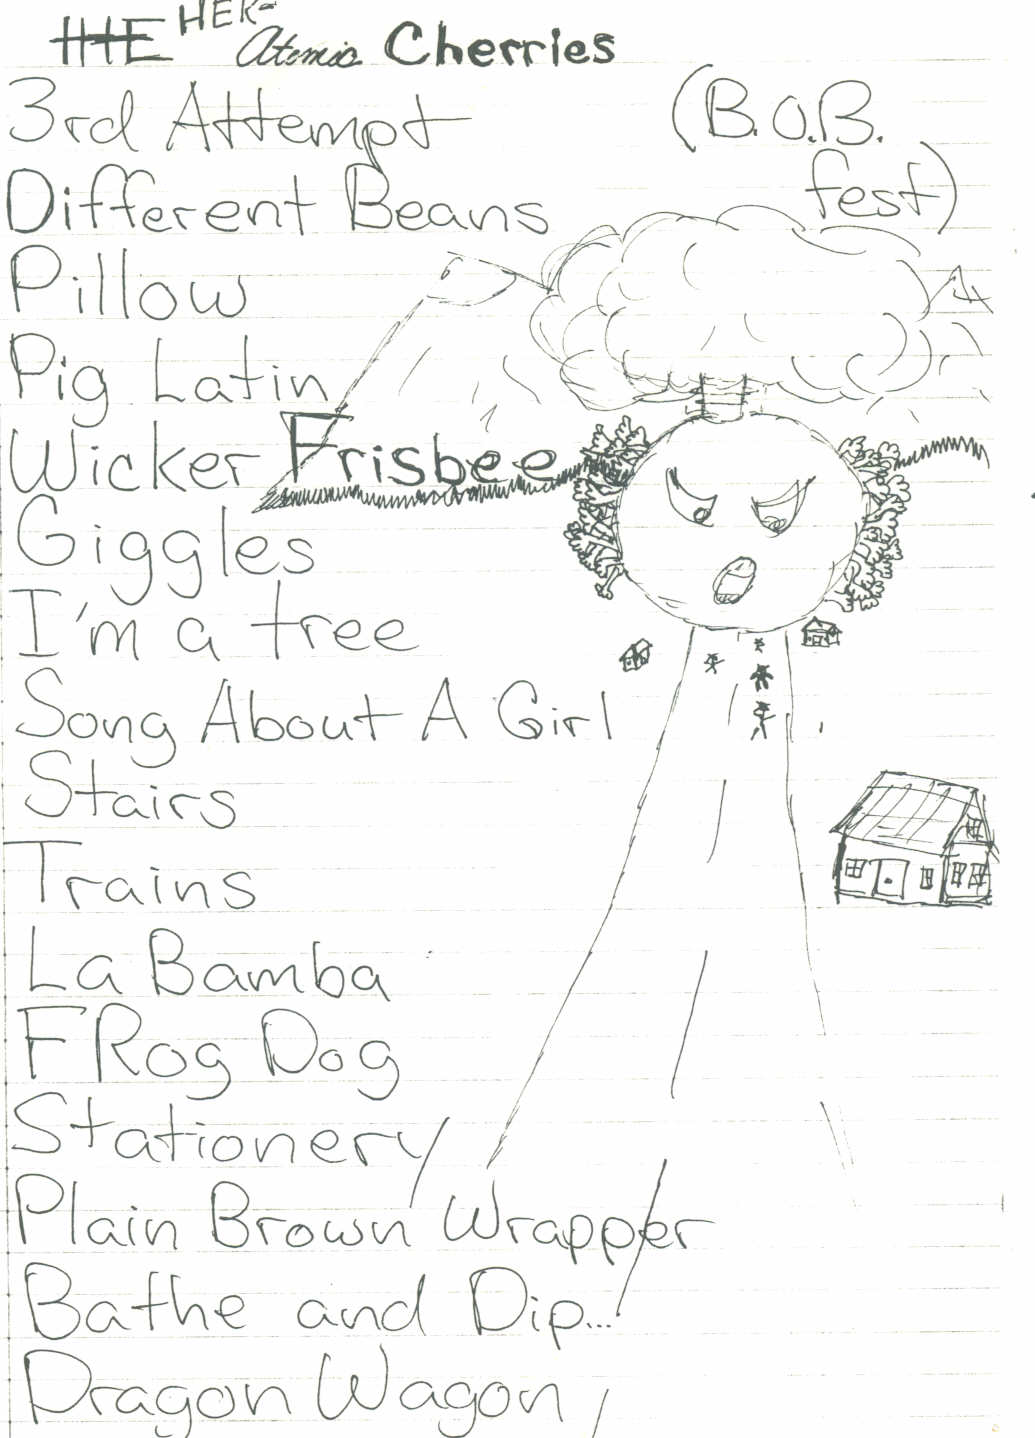 HER-
Atomic Cherries
3rd Attempt (B.O.B.
fest)
Different Beans
Pillow
Pig Latin
Wicker Frisbee
Giggles
I'm a tree
Song About A Girl
Stairs
Trains
La Bamba
FRog Dog
Stationery
Plain Brown Wrapper
Bathe and Dip...
Dragon Wagon